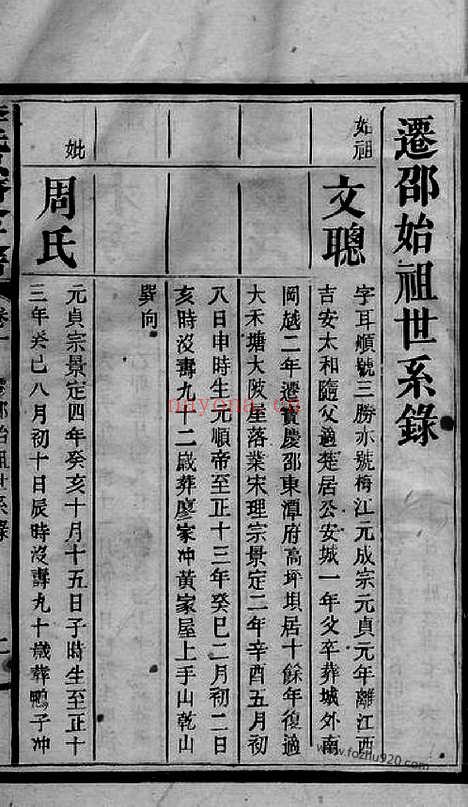 遷邵始祖世系錄
始祖
文聰
字耳順號三勝亦號梅江元成宗元貞元年離江西
吉安太和隨父適楚居公安城一年父卒葬城外南
岡越二年遷寶慶邵東潭府高坪垻居十餘年復適
大禾塘大陂屋落業宋理宗景定二年辛酉五月初
八日申時生元順帝至正十三年癸巳二月初二日
亥時沒壽九十二歲葬廖家冲黃家屋上手山乾山
巽向
妣
周氏
元貞宗景定四年癸亥十月十五日子時生至正十
三年癸巳八月初十日辰時沒壽九十歲葬鴨子冲
卷
邵始祖世系錄
nayona.cn
www.fozhu920.com